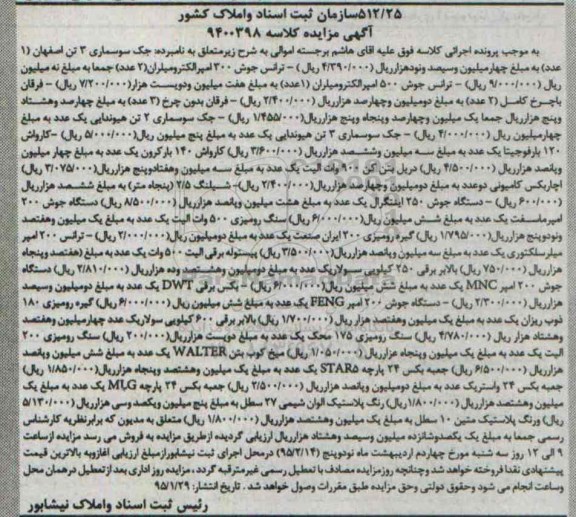 ۵۱۲/۲۵سازمان ثبت اسناد واملاک کشور
آگهی مزایده کلاسه ۹۴۰۰۳۹۸
به موجب پرونده اجرائی کلاسه فوق علیه آقای هاشم برجسته اموالی به شرح زیرمتعلق به نامبرده: جک سوسماری ۳ تن اصفهان (۱
عدد) به مبلغ چهارمیلیون وسیصد ونودهزارریال (۴/۳۹۰/۰۰۰ ریال) - ترانس جوش ۳۰۰ امپرالکترومیلران(۲ عدد) جمعا به مبلغ نه میلیون
ریال (۹/۰۰۰/۰۰۰ ریال - ترانس جوش ۵۰۰ امپرالکترومیلران (۱عدد) به مبلغ هفت میلیون ودویست هزار(۷/۲۰۰/۰۰۰ ریال) - فرقان
باچرخ کامل (۲ عدد) به مبلغ دومیلیون وچهارصد هزارریال (۲/۴۰۰/۰۰۰ ریال) - فرقان بدون چرخ (۳ عدد) به مبلغ چهارصد وهشتاد
وپنج هزارریال جمعا یک میلیون وچهارصد وپنجاه وپنج هزارریال(۱/۴۵۵/۰۰۰ ریال) - جک سوسماری ۲ تن هیوندایی یک عدد به مبلغ
چهارمیلیون ریال (۴/۰۰۰/۰۰۰ ریال) - جک سوسماری ۳ تن هیوندایی یک عدد به مبلغ پنج میلیون ریال(۵/۰۰۰/۰۰۰ ریال) -کارواش
۱۲۰ بارفوجیتا یک عدد به مبلغ سه میلیون وششصد هزارریال (۳/۶۰۰/۰۰۰ ریال) کارواش ۱۴۰ بارکرون یک عدد به مبلغ چهار میلیون
وپانصد هزارریال (۴/۵۰۰/۰۰۰ ریال) دریل بتن کن ۹۰۰ وات الیت یک عدد به مبلغ سه میلیون وهفتادوپنج هزارریال (۳/۰۷۵/۰۰۰ ریال)
آچاربکس کامیونی دوعدد به مبلغ دومیلیون وچهارصد هزارریال(۲/۴۰۰/۰۰۰ ریال)- شیلنگ ۲/۵ (پنجاه متر) به مبلغ ششصد هزارریال
(۶۰۰/۰۰۰ ریال) - دستگاه جوش ۲۵۰ اینتگرال یک عدد به مبلغ هشت میلیون وپانصد هزارریال (۸/۵۰۰/۰۰۰ ریال) دستگاه جوش ۲۰۰
امپرماسفت یک عدد به مبلغ شش میلیون ریال(۶/۰۰۰/۰۰۰ ریال) سنگ رومیزی ۵۰۰ وات الیت یک عدد به مبلغ یک میلیون وهفتصد
ونودوپنج هزارریال (۱/۷۹۵/۰۰۰ ریال) گیره رومیزی ۲۰۰ ایران صنعت یک عدد به مبلغ دومیلیون ریال(۲/۰۰۰/۰۰۰ ریال) - ترانس ۲۰۰ امپر
میلرسلکتوری یک عدد به مبلغ سه میلیون وپانصد هزارریال(۳/۵۰۰/۰۰۰ ریال) پیستوله برقی الیت ۵۰ وات یک عدد به مبلغ (هفتصد وپنجاه
هزارریال (۷۵۰/۰۰۰ ریال) بالابر برقی ۲۵۰ کیلویی سولاریک عدد به مبلغ دومیلیون وهشتصد وده هزارریال (۲/۸۱۰/۰۰۰ ریال) دستگاه
جوش ۲۰۰ امپر MNC یک عدد به مبلغ شش میلیون ریال (۶/۰۰۰/۰۰۰ ریال) - بکس برقی DWT یک عدد به مبلغ دومیلیون وسیصد
هزارریال (۲/۳۰۰/۰۰۰ ریال) - دستگاه جوش ۲۰۰ امپر FENG یک عدد به مبلغ شش میلیون ریال (۶/۰۰۰/۰۰۰ ریال) گیره رومیزی ۱۸۰
ذوب ریزان یک عدد به مبلغ یک میلیون وهفتصد هزار ریال (۱/۷۰۰/۰۰۰ ریال) بالابر برقی ۶۰۰ کیلویی سولاریک عدد چهارمیلیون وهفتصد
وهشتاد هزار ریال (۴/۷۸۰/۰۰۰ ریال) سنگ رومیزی ۱۷۵ محک یک عدد به مبلغ دویست هزارریال(۲۰۰/۰۰۰ ریال) سنگ رومیزی ۲۰۰
الیت یک عدد به مبلغ یک میلیون وپنجاه هزارریال (۱/۰۵۰/۰۰۰ ریال) میخ کوب بتن WALTER یک عدد به مبلغ شش میلیون وپانصد
هزارریال (۶/۵۰۰/۰۰۰ ریال) جعبه بکس ۲۴ پارچه STAR۵ یک عدد به مبلغ یک میلیون وهشتصد وپنجاه هزارریال(۱/۸۵۰/۰۰۰ ریال)
جعبه بکس ۲۴ واستریک عدد به مبلغ دومیلیون وپانصد هزارریال (۲/۵۰۰/۰۰۰ ریال) جعبه بکس ۲۴ پارچه MUG یک عدد به مبلغ یک
میلیون وهشتصد هزارریال (۱/۸۰۰/۰۰۰ریال) رنگ پلاستیک الوان شیمی ۲۷ سطل به مبلغ پنج میلیون ویکصد وسی هزارریال (۵/۱۳۰/۰۰۰
ریال) ورنگ پلاستیک متین ۱۰ سطل به مبلغ یک میلیون وهشتصد هزارریال (۱/۸۰۰/۰۰۰ ریال) متعلق به مدیون که برابرنظریه کارشناس
رسمی جمعا به مبلغ یک یکصدوشانزده میلیون وسیصد وهشتاد هزارریال ارزیابی گردیده ازطریق مزایده به فروش می رسد مزایده ازساعت
۹ الی ۱۲ روز سه شنبه مورخ چهاردم اردیبهشت ماه نودوپنج (۹۵/۲/۱۴) درمحل اجرای ثبت نیشابورازمبلغ ارزیابی آغازوبه بالاترین قیمت
پیشنهادی نقدا فروخته خواهد شد وچنانچه روزمزایده مصادف با تعطیل رسمی غیرمترقبه گردد ، مزایده روز اداری بعد ازتعطیل درهمان محل
وساعت انجام می شود وحقوق دولتی وحق مزایده طبق مقررات وصول خواهد شد . تاریخ انتشار: ۹۵/۱/۲۹
رئیس ثبت اسناد واملاک نیشابور